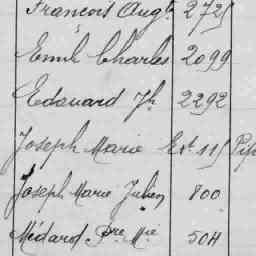 François Aug.te 2725
Emil Charles 2099
Edouard Jh 2292
Joseph Marie Ext 115
Joseph Marie Julien 800
Médard Pre Mie 504